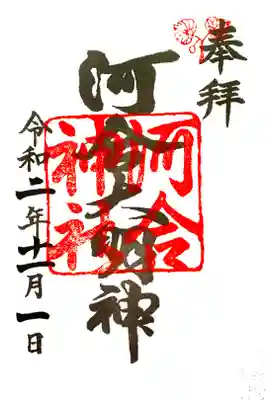 奉拝
河合神
河合
神社
令和二年十一月一日